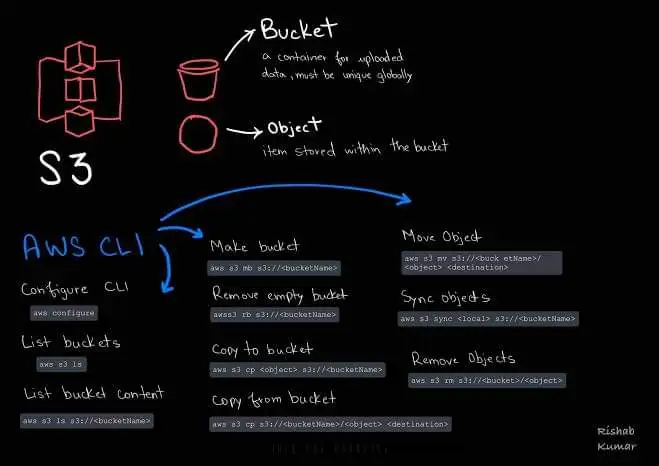 Bucket
a container for uploaded
data, must be unique globally
Object
item stored within the bucket
S3
AWS CLI
Configure CLI
aws configure
List buckets
aws s3 ls
List bucket content
aws s3 ls s3://<bucketName>
Make bucket
aws s3 mb s3://<bucketName>
Remove empty bucket
awss3 rb s3://<bucketName>
Copy to bucket
aws s3 cp <object> s3://<bucketName>
Copy from bucket
aws s3 cp s3://<bucketName>/<object> <destination>
Move Object
aws s3 mv s3://<buck etName>/
<object> <destination>
Sync objects
aws s3 sync <local> s3://<bucketName>
Remove Objects
aws s3 rm s3://<bucket>/<object>
Rishab
Kumar